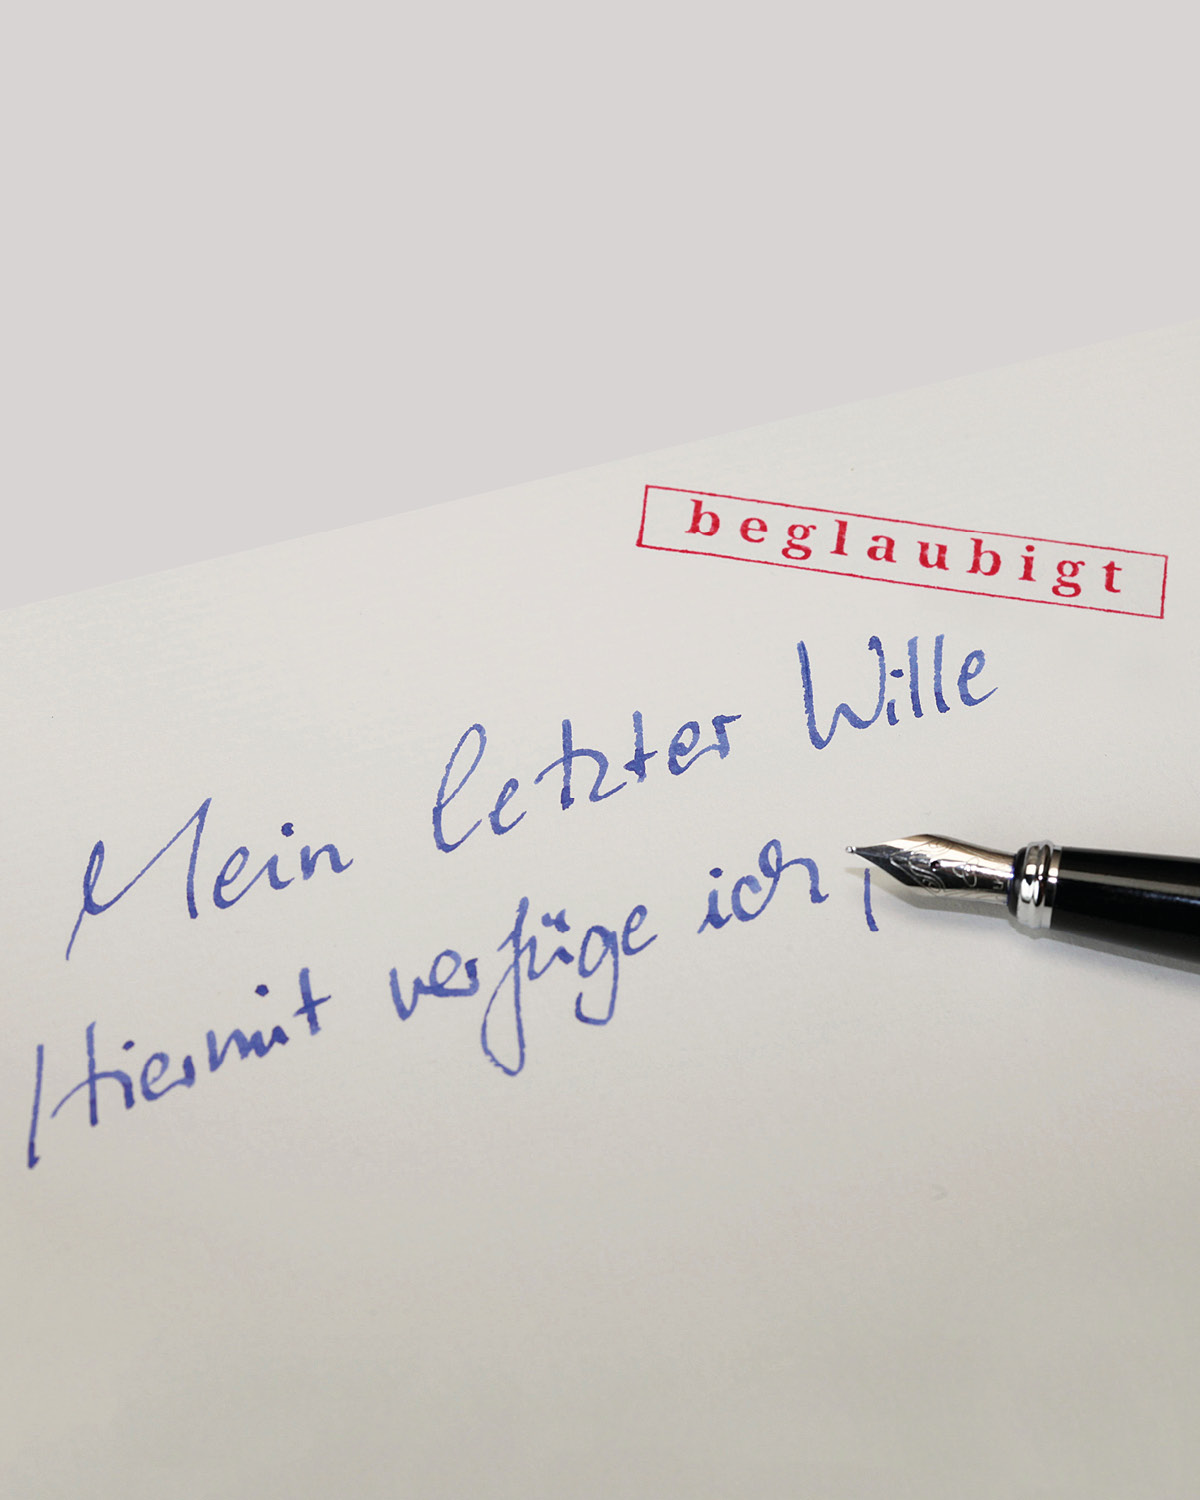 beglaubigt
Mein letzter Wille
Hiermit verfüge ich,